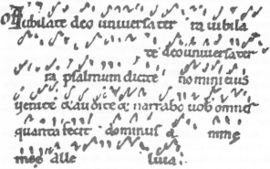 Iubilate deo universa ter ra iubila
te deo universa ter
ra psalmum dicite nomini eius
venite & audite & narrabo vob omnes
quanta fecit dominus
alle luia